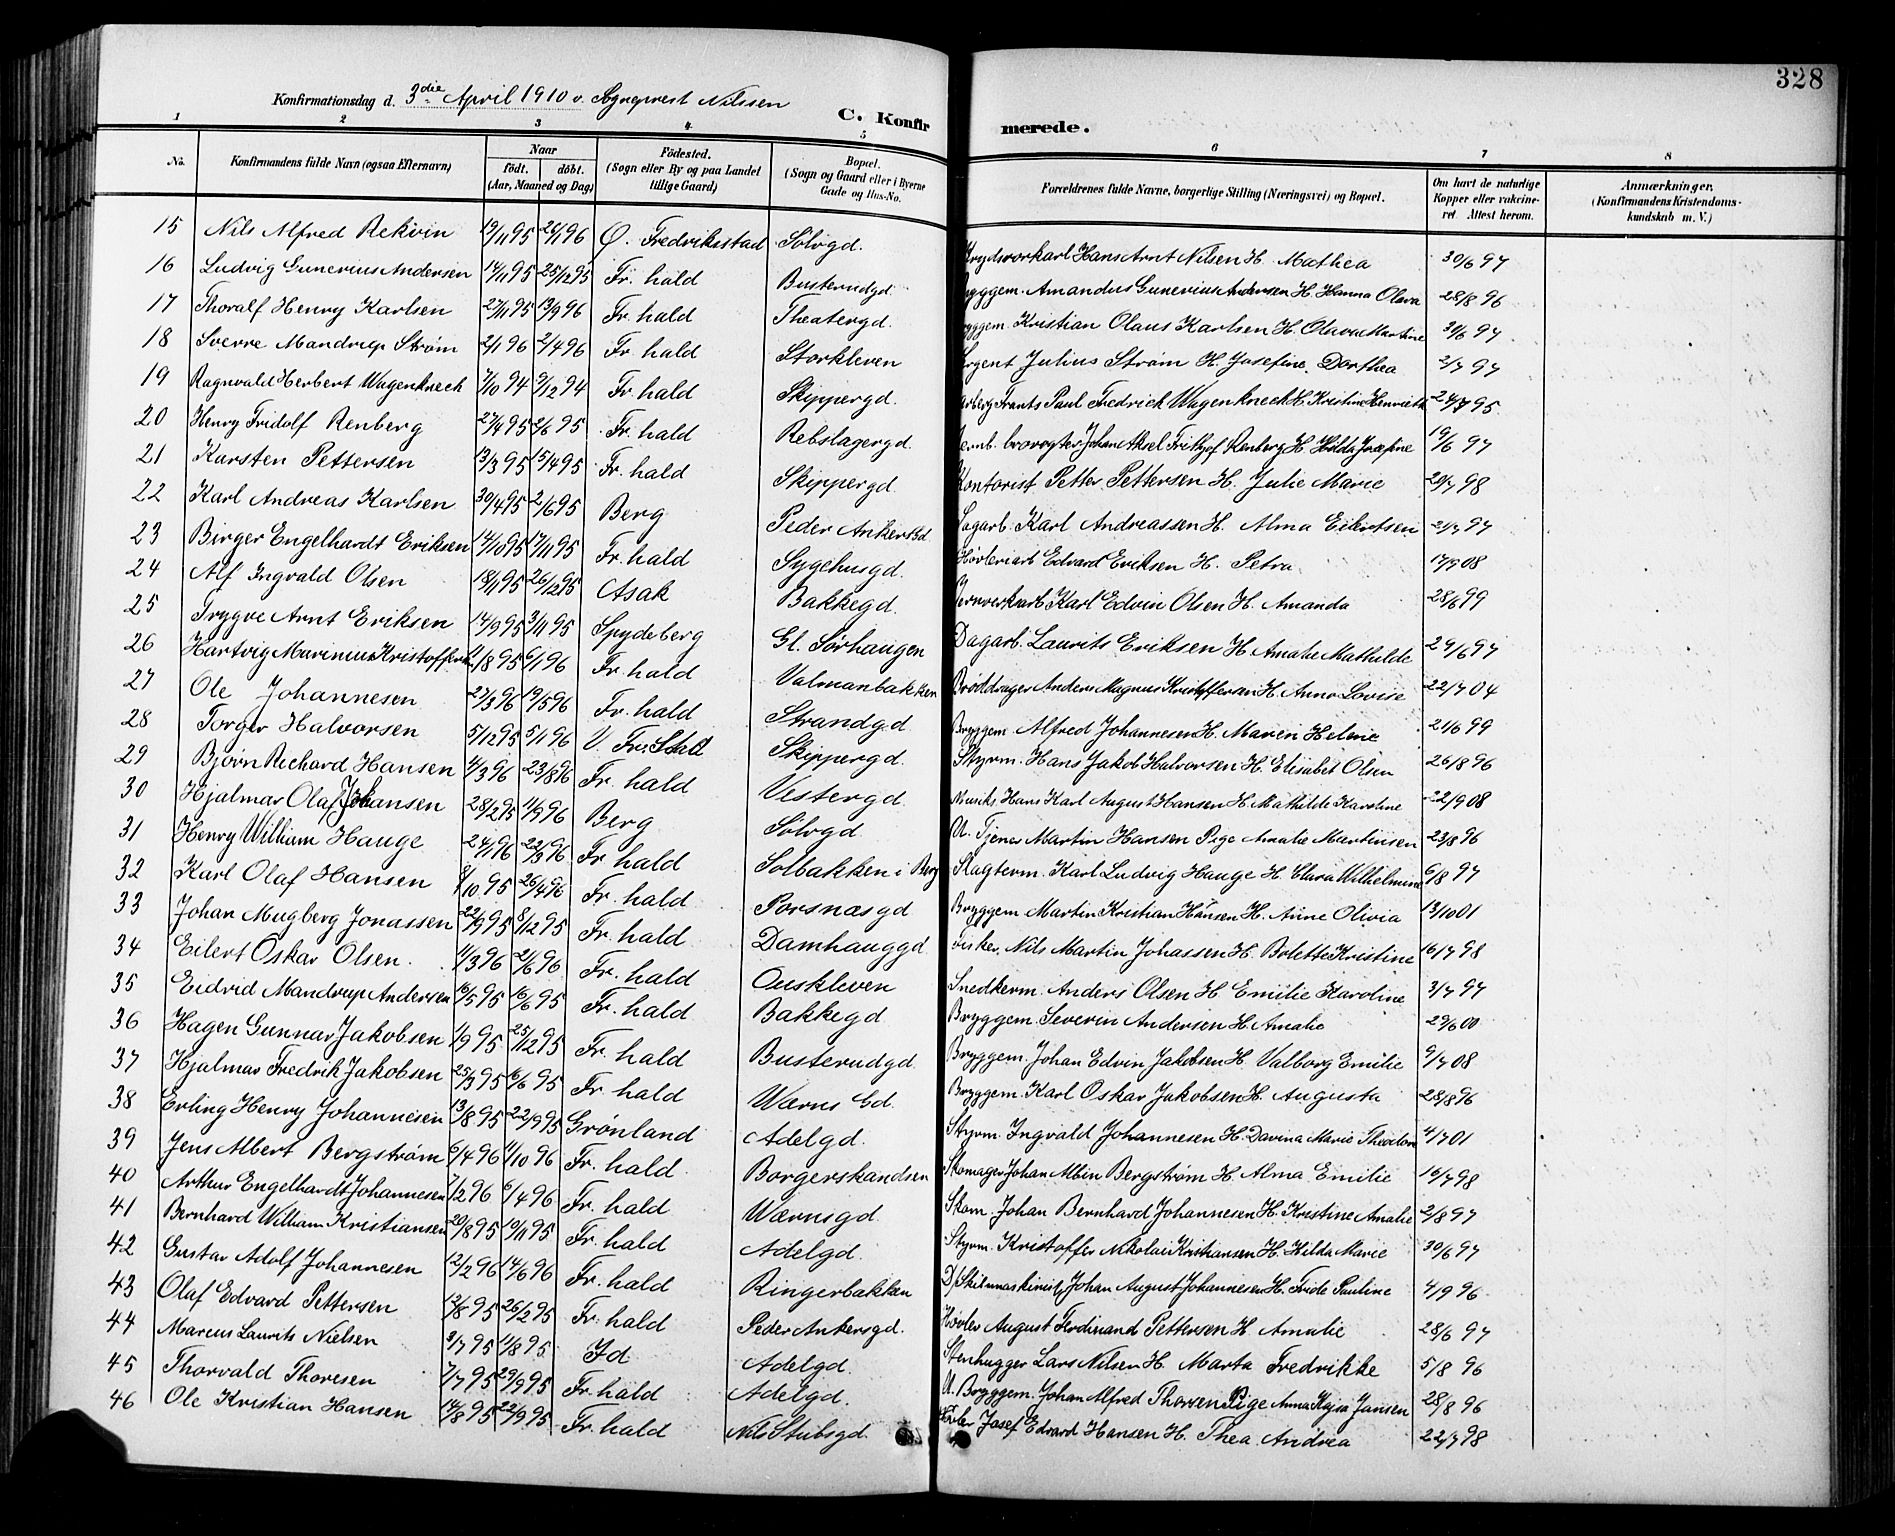 328
Konfirmationsdag d. 3die April 1910 v. Sogneprest Nilssen
C. Konfir merede.
1 2 3 4 5 6 7 8
No. Konfirmandens fulde Navn (ogsaa Efternavn) Naar födt. döbt. (Aar, Maaned og Dag) Födested. (Sogn eller By og paa Landet tillige Gaard) Bopæl. (Sogn og Gaard eller i Byerne Gade og Hus-No. Forældrenes fulde Navne, borgerlige Stilling (Næringsvei) og Bopæl. Om havt de naturlige Kopper eller vakcineret. Attest herom. Anmærkninger. (Konfirmandens Kristendomskundskab m. V.)
15 Nils Alfred Rekvin 19/11 95 26/1 96 Ø. Fredriksstad Sölvgd. Hans Arnt Nilsen H. Mathea 30/6 97
16 Ludvig Gunerius Andersen 14/11 95 25/12 95 Fr. hald Busterudgd. Bryggem. Amandus Gunerius Andersen H. Hanna Olava 28/8 96
17 Thoralf Henry Karlsen 27/11 95 13/9 96 Fr. hald Theatergd. Bryggem. Kristian Olaus Karlsen H. Olava Martine 30/6 97
18 Sverre Mandrup Strøm 2/1 96 2/4 96 Fr. hald Storkleven Sergent Julius Strøm H. Josefine Dorthea 2/7 97
19 Ragnvald Herbert Wagenknech 7/10 94 9/12 94 Fr. hald Skippergd. Frants Paul Fredrick Wagenknech H. Kristine Henriette 24/7 95
20 Henry Fridolf Renberg 27/4 95 2/6 95 Fr. hald Rebslagergd. Jernb. brovogter Johan Aksel Frithjof Renberg H. Hilda Josefine 19/6 97
21 Karsten Pettersen 13/3 95 15/4 95 Fr. hald Skippergd. Kontorist Petter Pettersen H. Julie Marie 20/7 98
22 Karl Andreas Karlsen 30/4 95 2/6 95 Berg Peder Ankersgd Sagarb. Karl Andreassen H. Alma Eilertsen 21/7 97
23 Birger Engelhardt Eriksen 14/10 95 17/11 95 Fr. hald Sygehusgd. Høvleriarb Edvard Eriksen H. Petra 17/9 08
24 Alf Ingvald Olsen 18/1 95 26/12 95 Asak Bakkegd. Jernverkarb. Karl Edvin Olsen H. Amanda 28/6 99
25 Trygve Arnt Eriksen 14/9 95 3/11 95 Spydeberg Gl. Sørhaugen Dagarb. Laurits Eriksen H. Amalie Mathilde 29/6 97
26 Hartvig Marinius Kristoffersen /8 95 6/1 96 Fr. hald Valmanbakken Brøddrager Anders Magnus Kristoffersen H. Anna Lovise 22/7 04
27 Ole Johannesen 27/3 96 19/5 96 Fr. hald Strandgd. Bryggem. Alfred Johannesen H. Maren Helene 21/6 99
28 Torger Halvorsen 5/12 95 5/1 96 V. Fr. Stad Skippergd. Styrm. Hans Jakob Halvorsen H. Elisabet Olsen 26/8 96
29 Bjørn Richard Hansen 4/3 96 23/8 96 Fr. hald Vestergd. Musiks Hans Karl August Hansen H. Mathilde Karoline 22/9 08
30 Hjalmar Olaf Johansen 28/2 95 1/9 96 Berg Sölvgd. U. Tjener Martin Hansen Pige Amalie Martinsen 23/8 96
31 Henry William Hauge 24/1 96 22/3 96 Fr. hald Solbakken i Berg Slagterm. Karl Ludvig Hauge H. Clara Wilhelmine 6/8 97
32 Karl Olaf Hansen 8/10 95 26/4 96 Fr. hald Porsnæsgd Bryggem Martin Kristian Hansen H. Anne Olivia 13/10 01
33 Johan Mugberg Jonassen 22/9 95 8/12 95 Fr. hald Damhauggd. Fisker. Nils Martin Johassen H. Bolette Kristine 16/7 98
34 Eilert Oskar Olsen. 11/3 96 21/6 96 Fr. hald Ouskleven Snedkerm. Anders Olsen H. Emilie Karoline 3/7 97
35 Eidvid Mandrup Andersen 16/5 95 16/6 95 Fr. hald Bakkegd Bryggem. Severin Andersen H. Amalie 29/6 00
36 Hagen Gunnar Jakobsen 1/9 95 25/12 95 Fr. hald Busterudgd. Bryggem. Johan Edvin Jakobsen H. Valborg Emilie 9/7 08
37 Hjalmar Fredrik Jakobsen 25/3 95 6/6 95 Fr. hald Wærns Gd. Bryggem. Karl Oskar Jakobsen H. Augusta 28/8 96
38 Erling Henry Johannesen 13/8 95 22/9 95 Grønland Adelgd. Styrm. Ingvald Johannesen H. Davina Marie Theodora 4/7 01
39 Jens Albert Bergstrøm 6/4 96 11/10 96 Fr. hald Borgerskandsen Skomager Johan Albin Bergstrøm H. Alma Emilie 16/7 98
40 Arthur Engelhardt Johannesen 7/2 96 6/4 96 Fr. hald Wærnsgd. Skom. Johan Bernhard Johannesen H. Kristine Amalie 2/8 97
41 Bernhard William Kristiansen 20/8 95 10/11 95 Fr. hald Adelgd. Styrm. Kristoffer Nikolai Kristiansen H. Hilda Marie 30/6 97
42 Gustav Adolf Johannesen 12/2 96 14/6 96 Fr. hald Ringerbakken D/Skibsmaskinist Johan August Johannesen H. Frida Pauline 4/9 96
43 Olaf Edvard Pettersen 12/8 95 26/12 95 Fr. hald Peder Ankersgd. Høvler August Ferdinand Pettersen H. Amalie 28/6 97
44 Marcus Laurits Nielsen 3/7 95 11/8 95 Id Adelgd. Stenhugger Lars Nilsen H. Marta Fredrikke 5/8 96
45 Thorvald Thoresen 7/7 95 29/9 95 Fr. hald Adelgd. U. Bryggem. Johan Alfred Thoresen Pige Anna Kajsa Jansen 28/8 96
46 Ole Kristian Hansen 14/8 95 22/9 95 Fr. hald Nils Stubsgd. Høvler Josef Edvard Hansen H. Thea Andrea 22/7 98